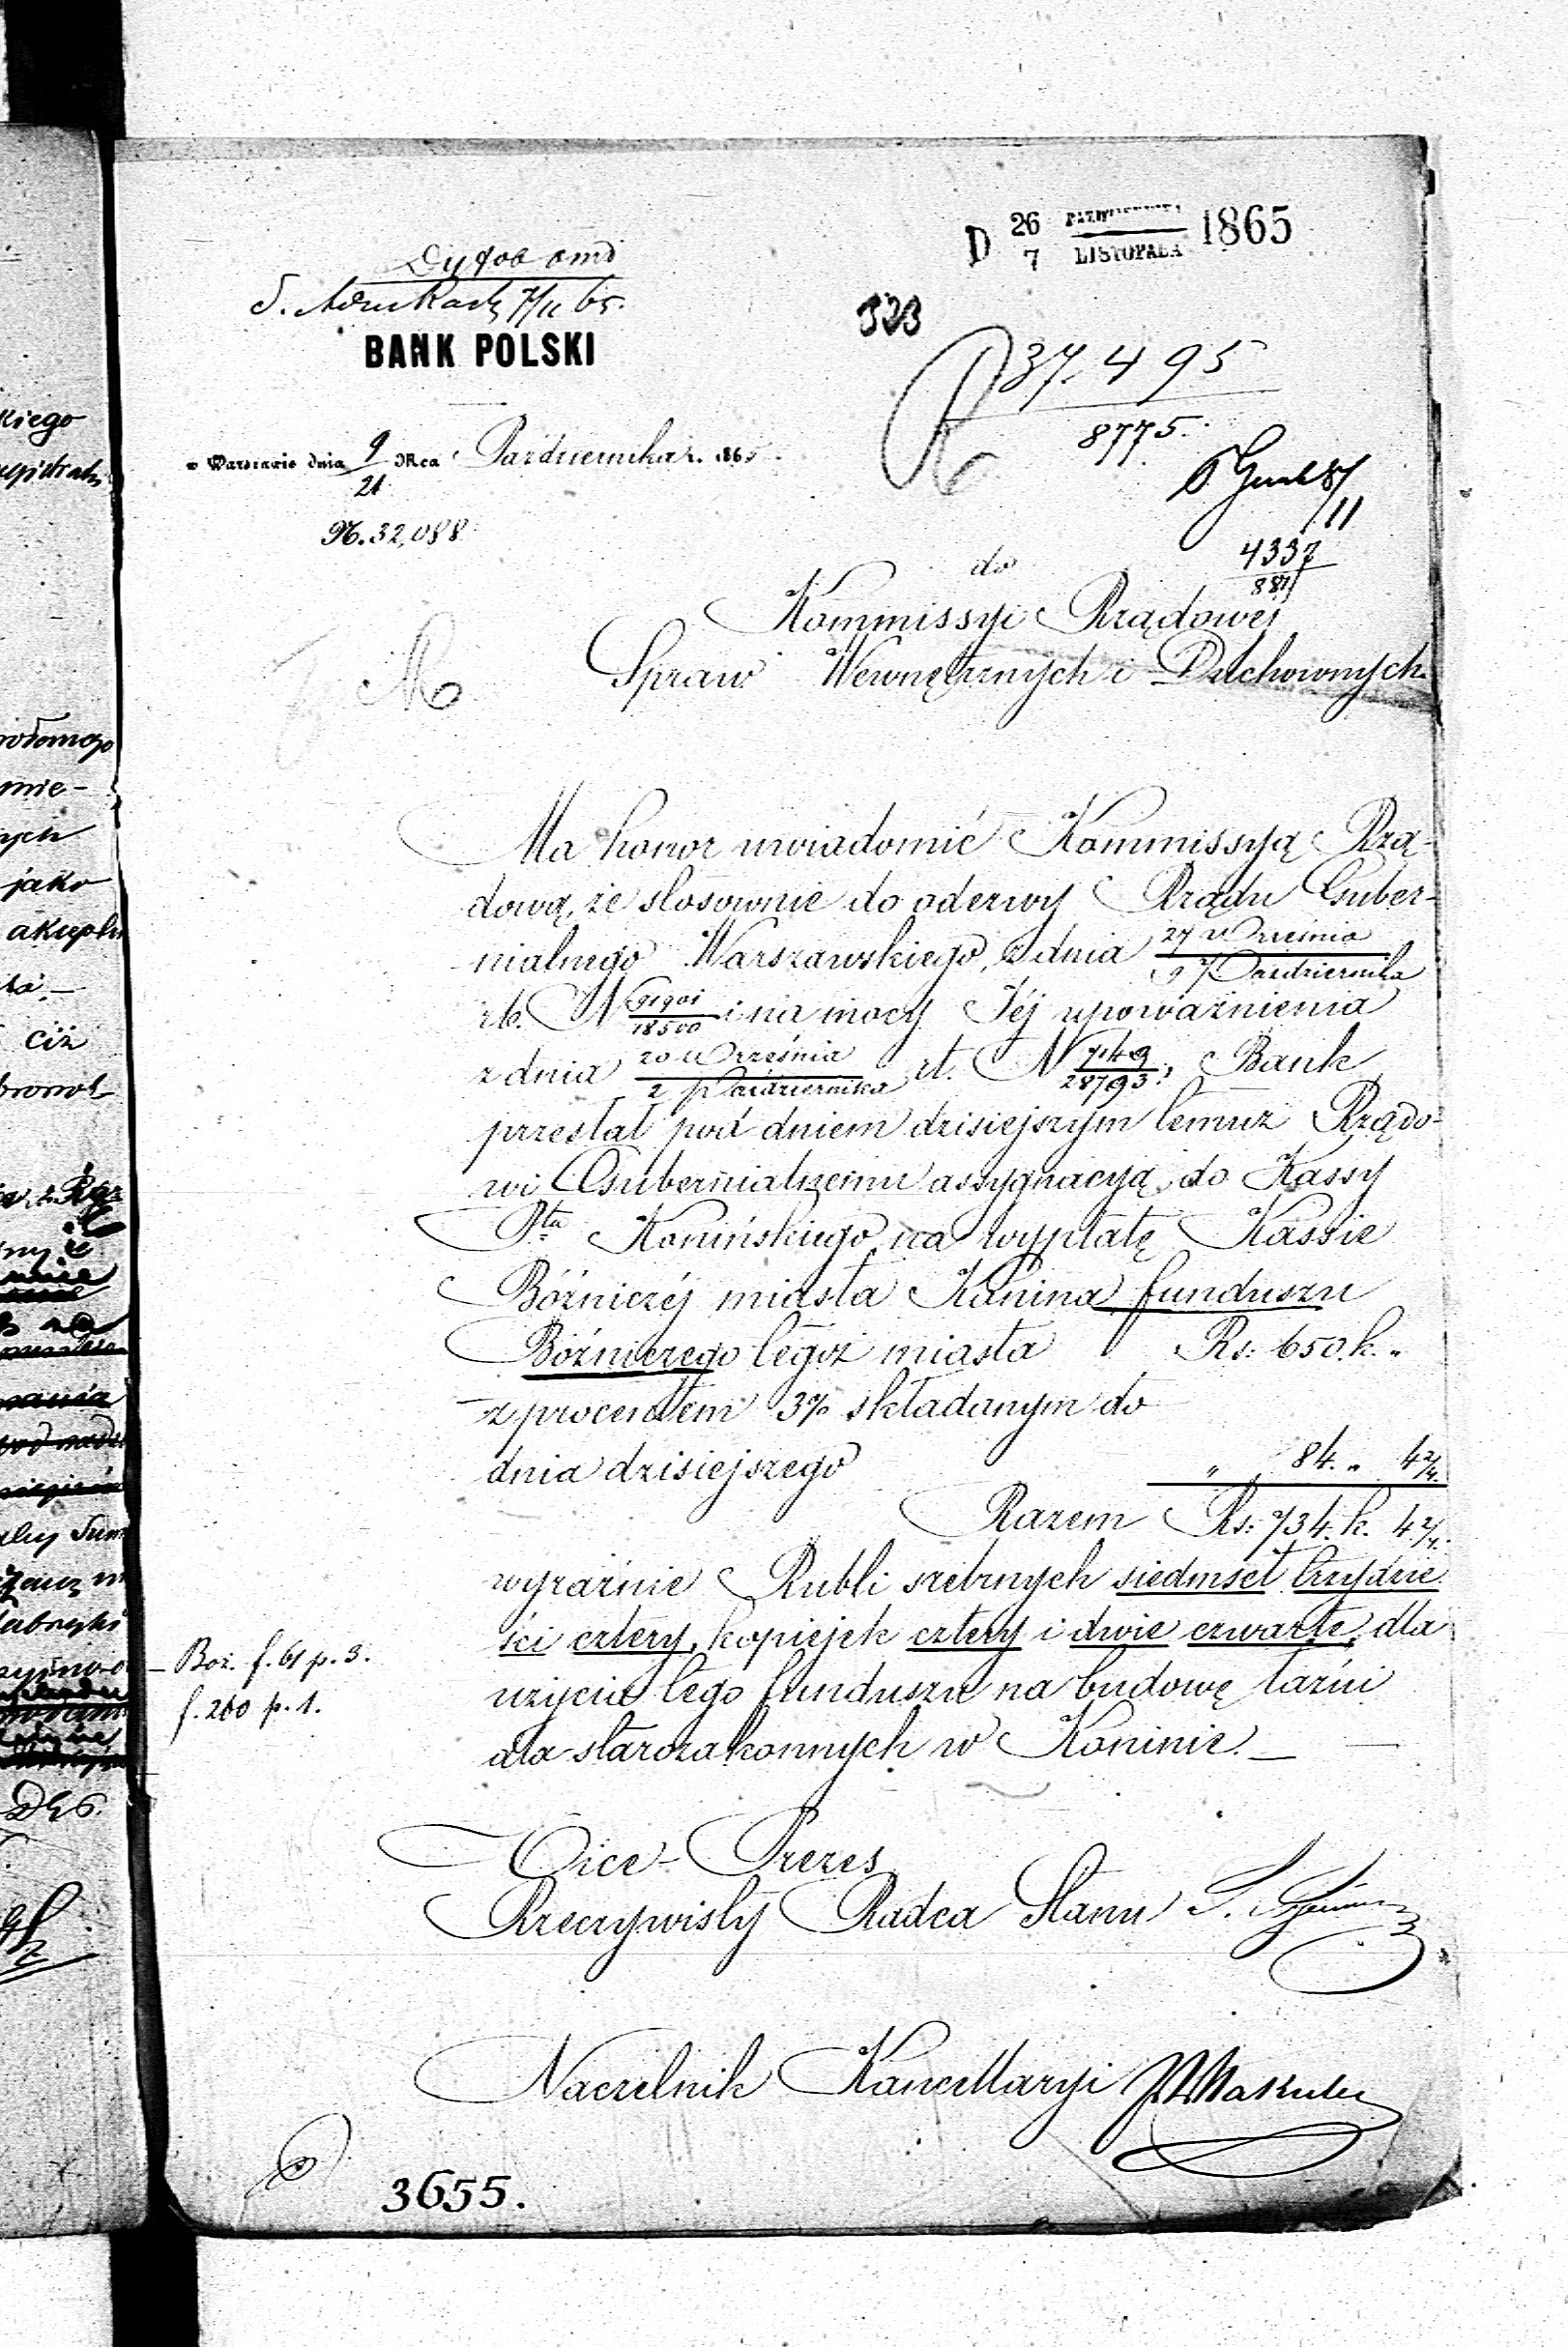 D 26/7 PAZDZIERNIKA/LISTOPADA 1865
7/11 65.
BANK POLSKI
323
37.495
8775.
w Warszawie dnia 9/21 Mca Październikar. 1865
8/11
N. 32,088
4337
881
do
Kommissyi Rządowej
Spraw Wewnętrznych i Duchownych
Ma honor uwiadomić Kommissyą Rzą-
dową, że stosownie do odezwy Rządu Guber-
nialnego Warszawskiego, z dnia 27 Września/9 Października
rb. N 91901/18500 i na mocy Jéj upoważnienia
z dnia 20 Września/2 Października rt. N 7149/28793, Bank
przesłał pod dniem dzisiejszym temuż Rządo-
wi Gubernialnemu assygnacyą do Kassy
Ptu Konińskiego na wypłatę Kassie
Bóźniczéj miasta Konina funduszu
Bóźniczego tegoż miasta Rs: 650. k. "
z procentem 3% składanym do
dnia dzisiejszego " 84. " 4 2/4.
Razem Rs: 734. k. 4 2/4.
wyraźnie Rubli srebrnych siedmset trzydzie
ści cztery, kopiejek cztery i dwie czwarte, dla
Boż. f. 61 p. 3.
użycia tego funduszu na budowę łaźni
f. 260 p. 1.
dla starozakonnych w Koninie.
Vice-Prezes
Rzeczywisty Radca Stanu
Naczelnik Kancellaryi
3655.
kiego
mie-
nych
jako
ciż